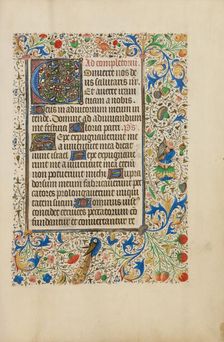 Ad completorium
Converte nos de
us salutaris nr̄.
Et averte iram
tuam a nobis.
Deus in adiutorium meum in
tende. Domine ad adiuvandum
me festina Gloria patri. Ps
Sepe expugnaverunt me
a iuventute mea dicat
nunc israel Sepe expugnave
runt me a iuventute mea etenim
non potuerunt michi Supra
dorsum meum fabricaverunt pec
catores prolongaverunt iniquita
tem suam Dominus ius
concidet cervices peccatorum con
fundantur et convertantur re